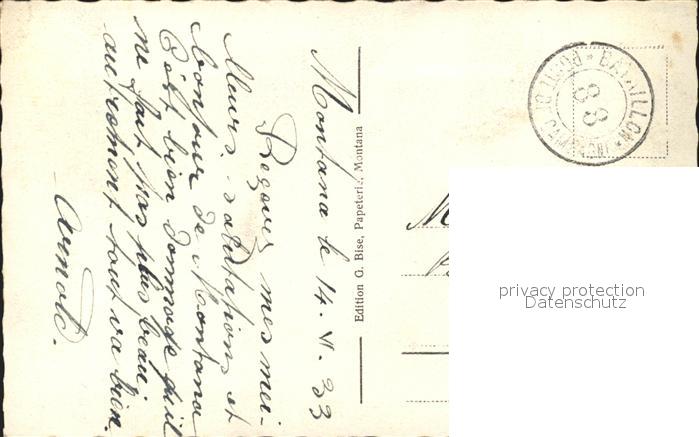 Montana le 14. VI. 33
Recevez mes mei-
lleurs salutations et
bonjour de Montana
C'est bien dommage qu'il
ne fait pas plus beau
autrement tout va bien.
Arnold.
Edition G. Bise, Papeterie, Montana
BATAILLON
88
M
privacy protection
Datenschutz